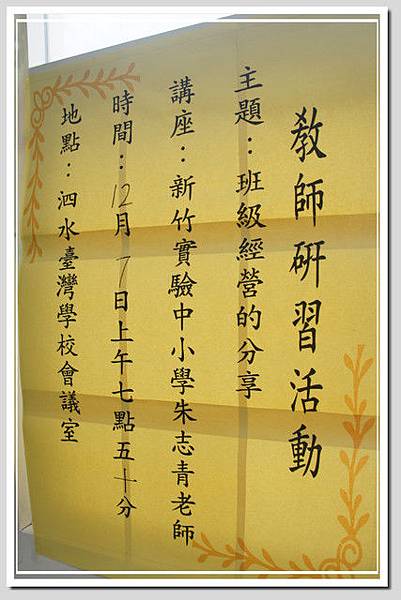 教師研習活動
主題：班級經營的分享
講座：新竹實驗中小學朱志青老師
時間：12月7日上午七點五十分
地點：泗水臺灣學校會議室